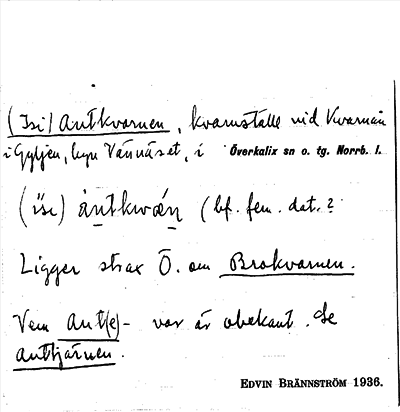 (Isi) Antkvarnen, kvarnställe vid Kvarnån
i Gyljen, byn Vännäset, i Överkalix sn o. tg. Norrb. l.
(ise) åntkwæn (bf. fem. dat.?
Ligger strax Ö. om Brokvarnen.
Vem Ant(e)- var är obekant. Se
Anttjärnen.
EDVIN BRÄNNSTRÖM 1936.